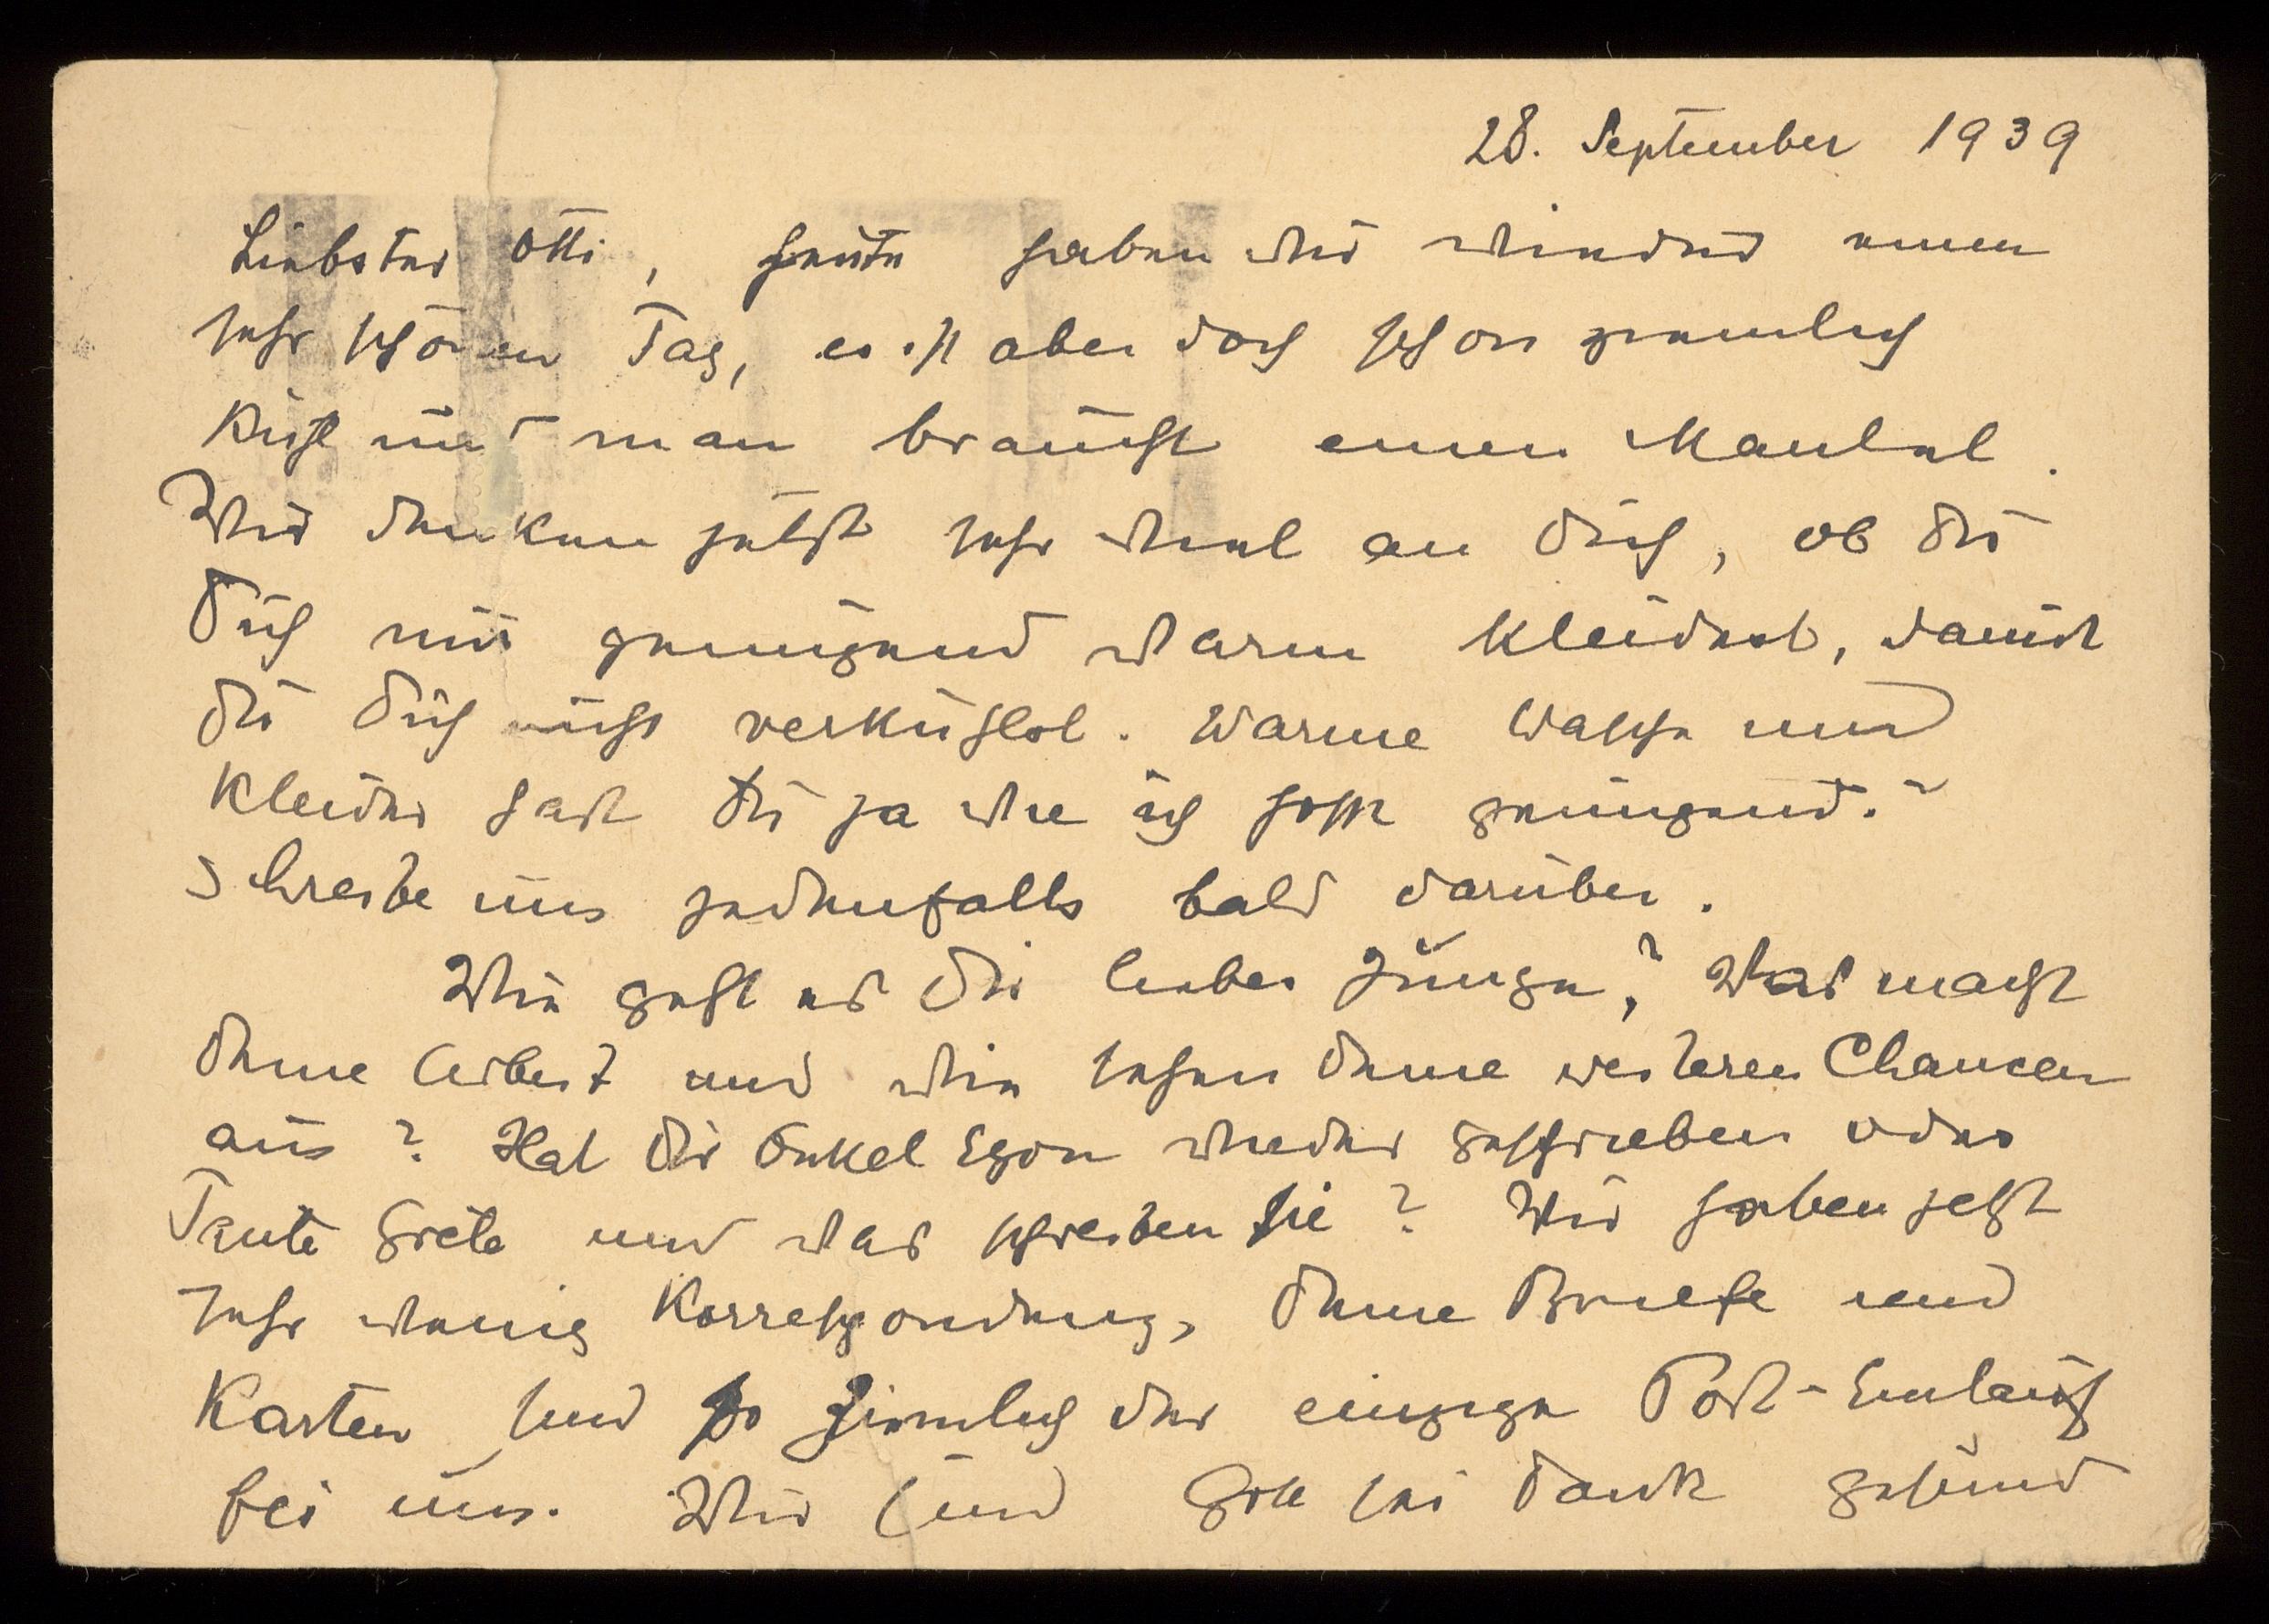 28. September 1939
Liebster Otti, heute haben wir wieder einen
sehr schönen Tag, es ist aber doch schon ziemlich
kühl und man braucht einen Mantel.
Wir denken jetzt sehr viel an Dich, ob Du
Dich nur genügend warm kleidest, damit
Du Dich nicht verkühlst. Warme Wäsche und
Kleider hast Du ja wie ich hoffe genügend.
Schreibe uns jedenfalls bald darüber.
Wie geht es Dir lieber Junge? Was macht
Deine Arbeit und wie sehen Deine weiteren Chancen
aus? Hat Dir Onkel Egon wieder geschrieben oder
Tante Grete und was schreiben sie? Wir haben jetzt
sehr wenig Korrespondenz, Deine Briefe und
Karten sind so ziemlich der einzige Post-Einlauf
bei uns. Wir sind Gott sei Dank gesund